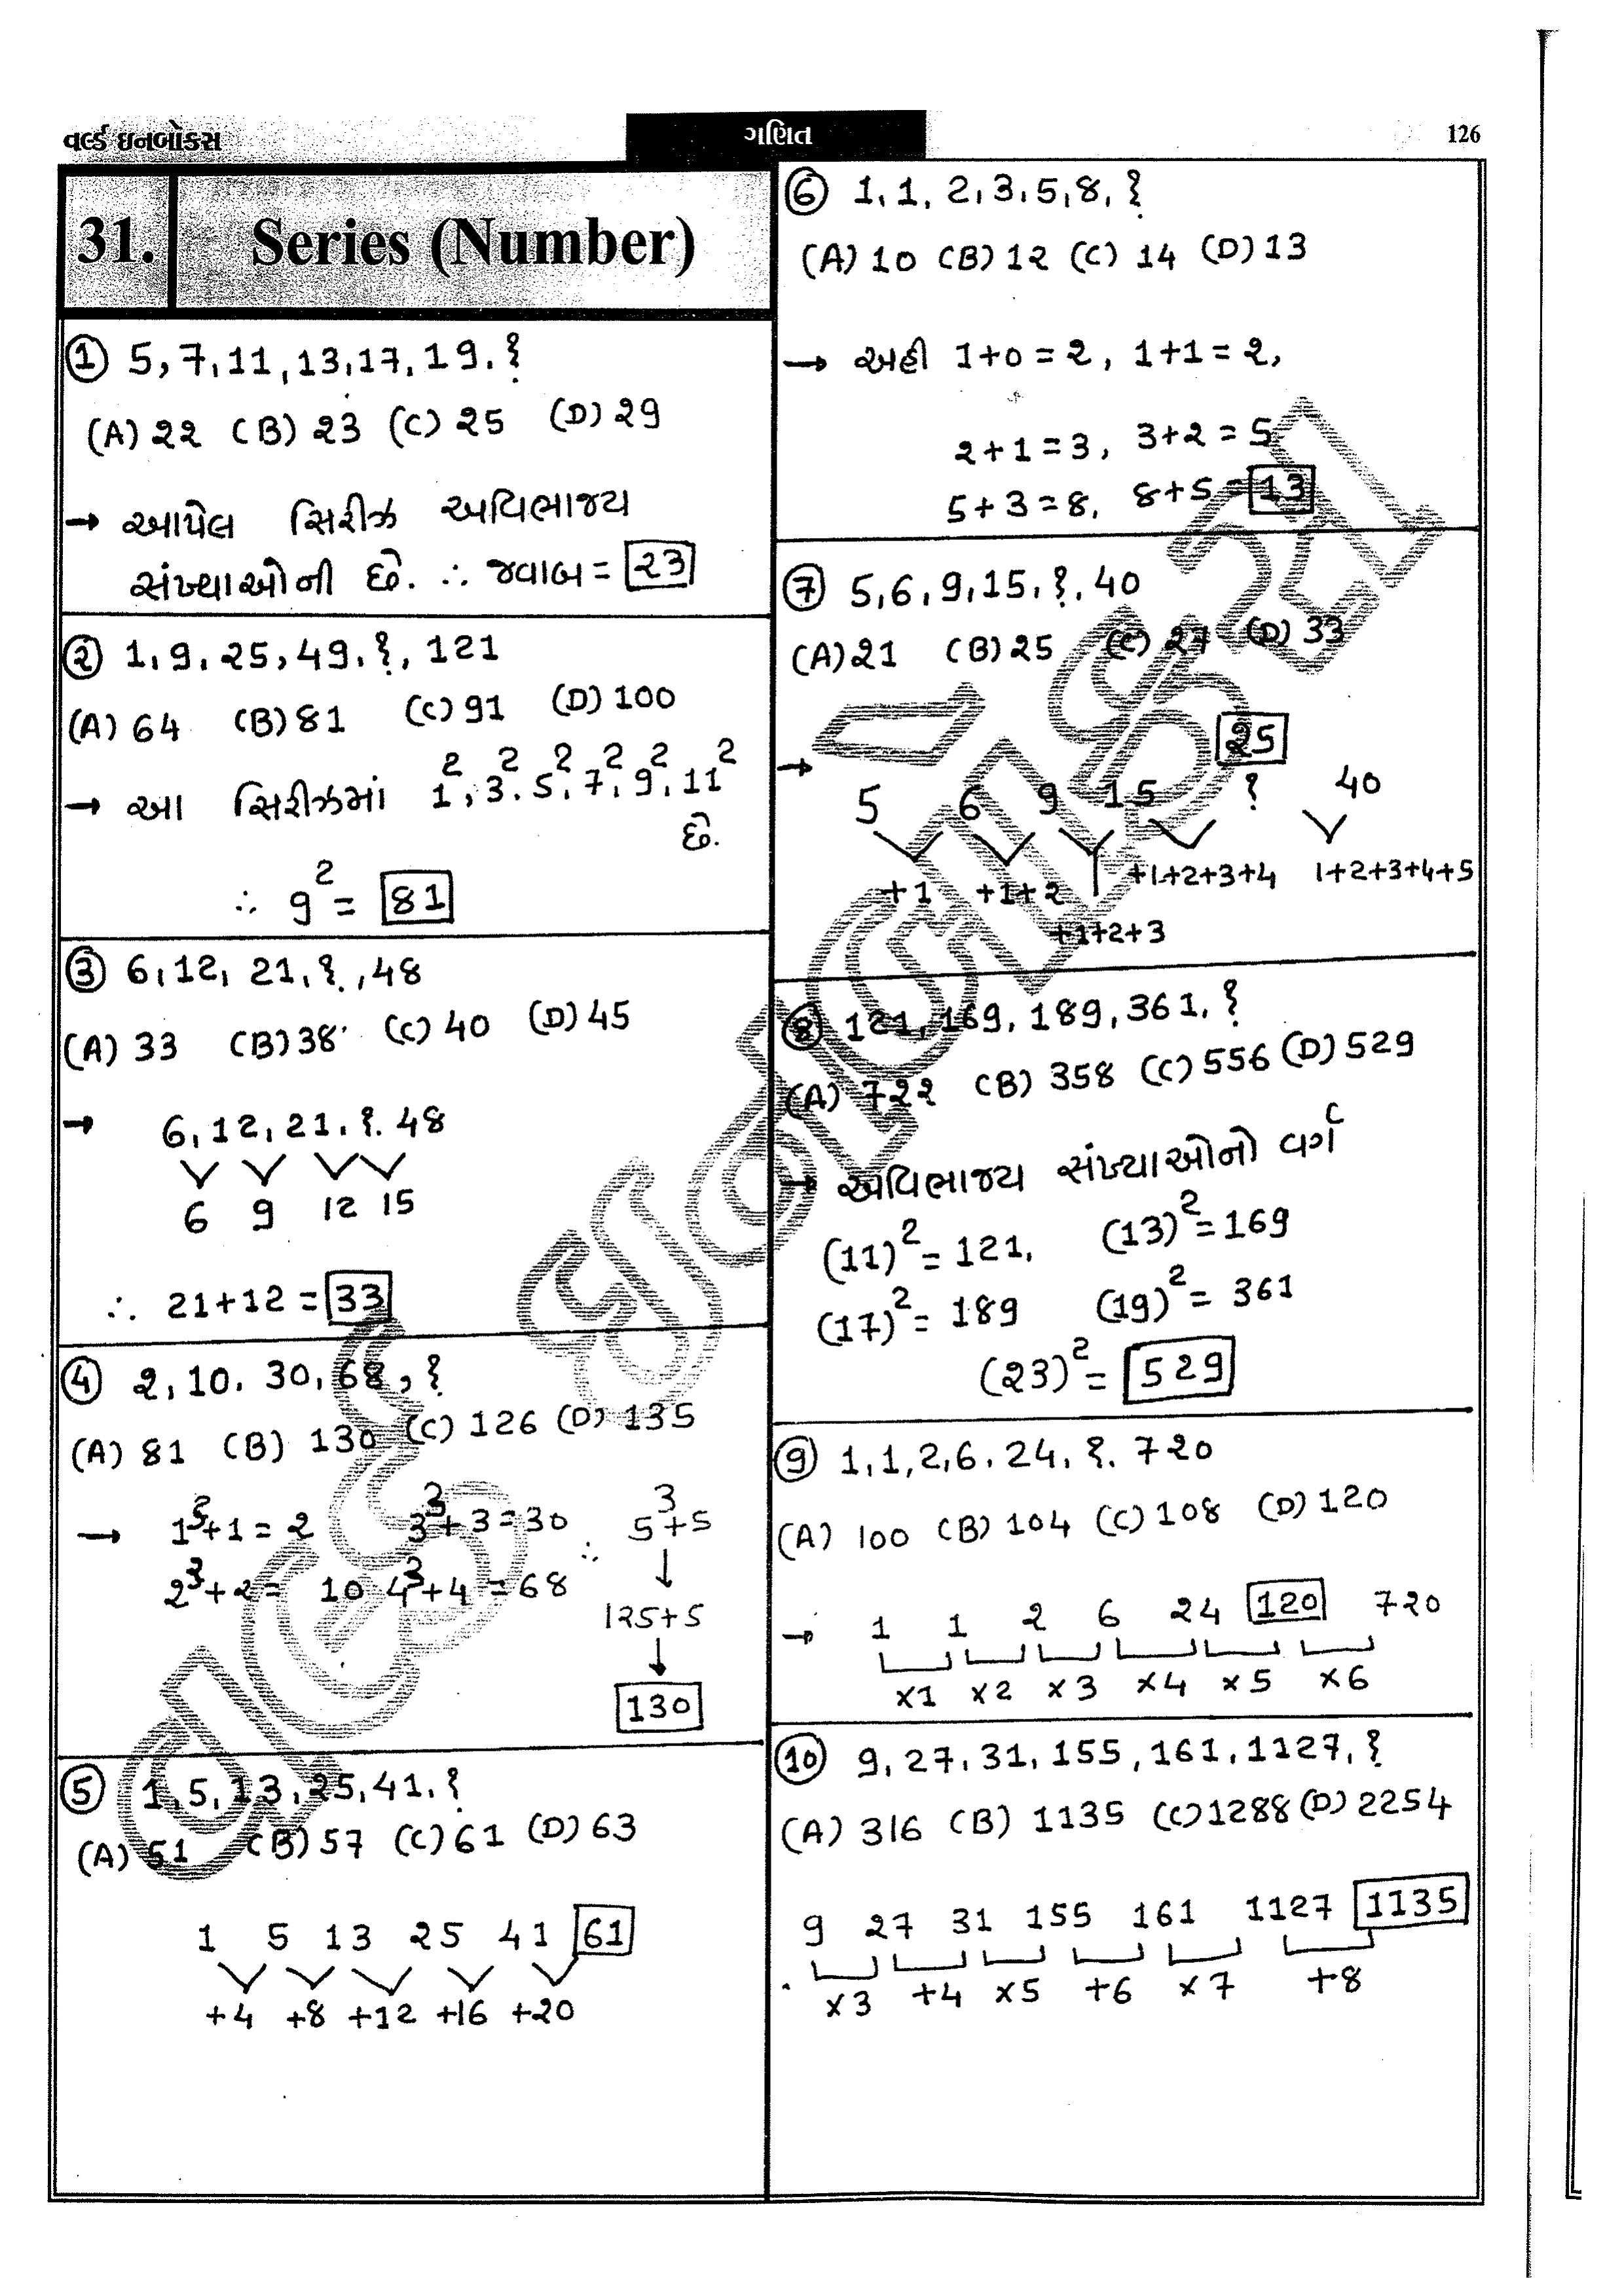 વર્લ્ડ ઇનબોક્સ
ગણિત
126
31.
Series (Number)
① 5, 7, 11, 13, 17, 19, ?
(A) 22 (B) 23 (C) 25 (D) 29
→ આપેલ સિરીઝ અવિભાજ્ય
સંખ્યાઓની છે. ∴ જવાબ = 23
② 1, 9, 25, 49, ?, 121
(A) 64 (B) 81 (C) 91 (D) 100
→ આ સિરીઝમાં 1², 3², 5², 7², 9², 11²
છે.
∴ 9² = 81
③ 6, 12, 21, ?, 48
(A) 33 (B) 38 (C) 40 (D) 45
→ 6, 12, 21, ?, 48
6 9 12 15
∴ 21+12 = 33
④ 2, 10, 30, 68, ?
(A) 81 (B) 130 (C) 126 (D) 135
→ 1³+1 = 2 3³+3 = 30 ∴ 5³+5
2³+2 = 10 4³+4 = 68
125+5
130
⑤ 1, 5, 13, 25, 41, ?
(A) 51 (B) 57 (C) 61 (D) 63
1 5 13 25 41 61
+4 +8 +12 +16 +20
⑥ 1, 1, 2, 3, 5, 8, ?
(A) 10 (B) 12 (C) 14 (D) 13
→ અહી 1+0 = 2, 1+1 = 2,
2+1 = 3, 3+2 = 5
5+3 = 8, 8+5 = 13
⑦ 5, 6, 9, 15, ?, 40
(A) 21 (B) 25 (C) 27 (D) 33
25
→ 5 6 9 15 ? 40
+1 +1+2 +1+2+3+4 1+2+3+4+5
+1+2+3
⑧ 121, 169, 189, 361, ?
(A) 722 (B) 358 (C) 556 (D) 529
→ અવિભાજ્ય સંખ્યાઓનો વર્ગ
(11)² = 121, (13)² = 169
(17)² = 189 (19)² = 361
(23)² = 529
⑨ 1, 1, 2, 6, 24, ?, 720
(A) 100 (B) 104 (C) 108 (D) 120
→ 1 1 2 6 24 120 720
×1 ×2 ×3 ×4 ×5 ×6
⑩ 9, 27, 31, 155, 161, 1127, ?
(A) 316 (B) 1135 (C) 1288 (D) 2254
9 27 31 155 161 1127 1135
×3 +4 ×5 +6 ×7 +8